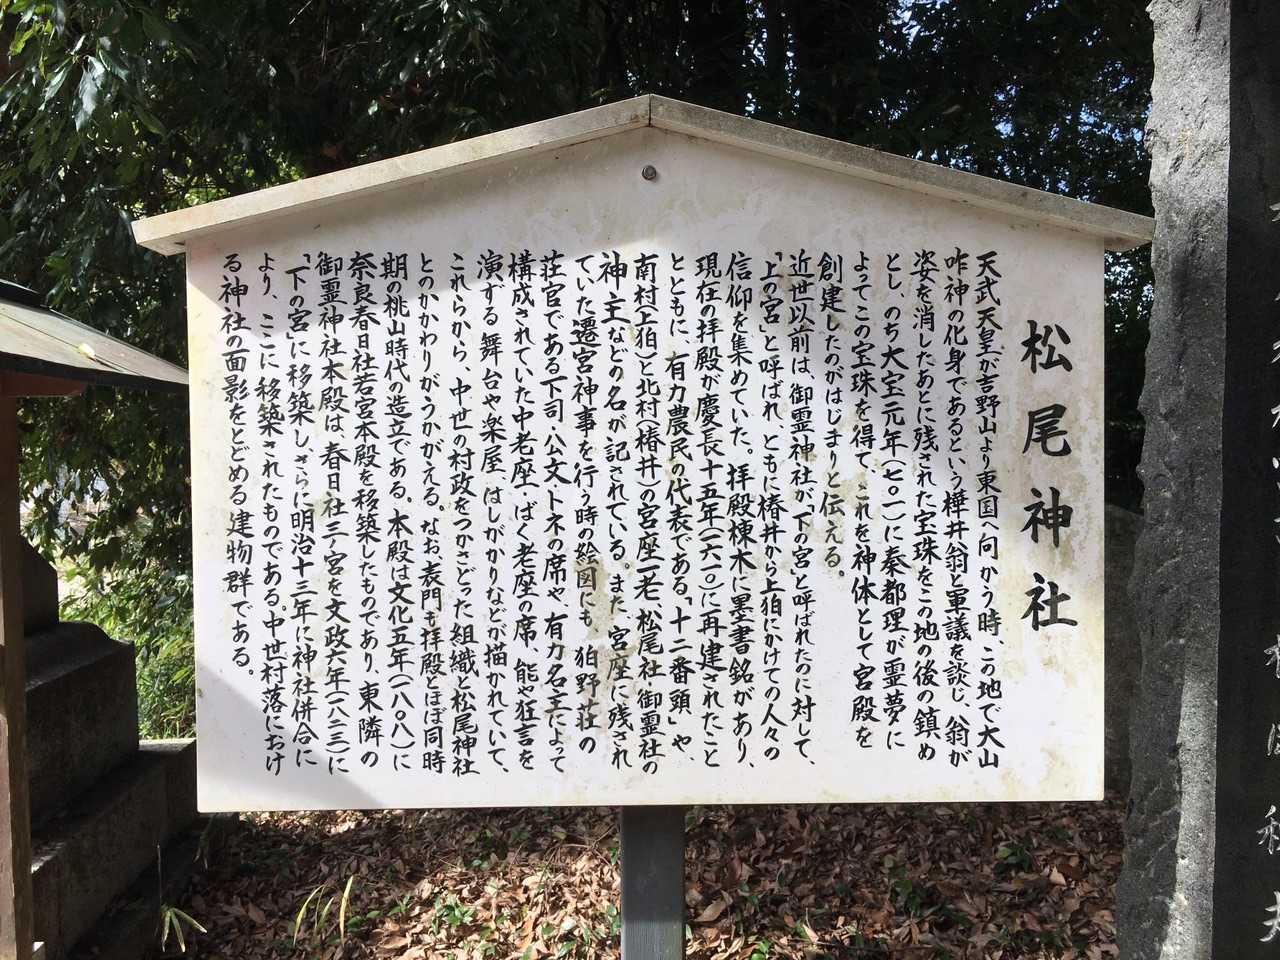 松尾神社
天武天皇が吉野山より東国へ向かう時、この地で大山
咋神の化身であるという樺井翁と軍議を談じ、翁が
姿を消したあとに残された宝珠をこの地の後の鎮め
とし、のち大宝元年(七〇一)に秦都理が霊夢に
よってこの宝珠を得て、これを神体として宮殿を
創建したのがはじまりと伝える。
近世以前は、御霊神社が「下の宮」と呼ばれたのに対して、
「上の宮」と呼ばれ、ともに椿井から上狛にかけての人々の
信仰を集めていた。拝殿棟木に墨書銘があり、
現在の拝殿が慶長十五年(一六一〇)に再建されたこと
とともに、有力農民の代表である、「十二番頭」や
南村(上狛)と北村(椿井)の宮座一老、松尾社御霊社の
神主などの名が記されている。また、宮座に残され
ていた遷宮神事を行う時の絵図にも、狛野荘の
荘官である下司・公文トネの席や、有力名主によって
構成されていた中老座・ばく老座の席、能や狂言を
演ずる舞台や楽屋、はしがかりなどが描かれていて、
これらから、中世の村政をつかさどった組織と松尾神社
とのかかわりがうかがえる。なお、表門も拝殿とほぼ同時
期の桃山時代の造立である。本殿は文化五年(一八〇八)に
奈良春日社若宮本殿を移築したものであり、東隣の
御霊神社本殿は、春日社三ノ宮を文政六年(一八二三)に
「下の宮」に移築し、さらに明治十三年に神社併合に
より、ここに移築されたものである。中世村落におけ
る神社の面影をとどめる建物群である。